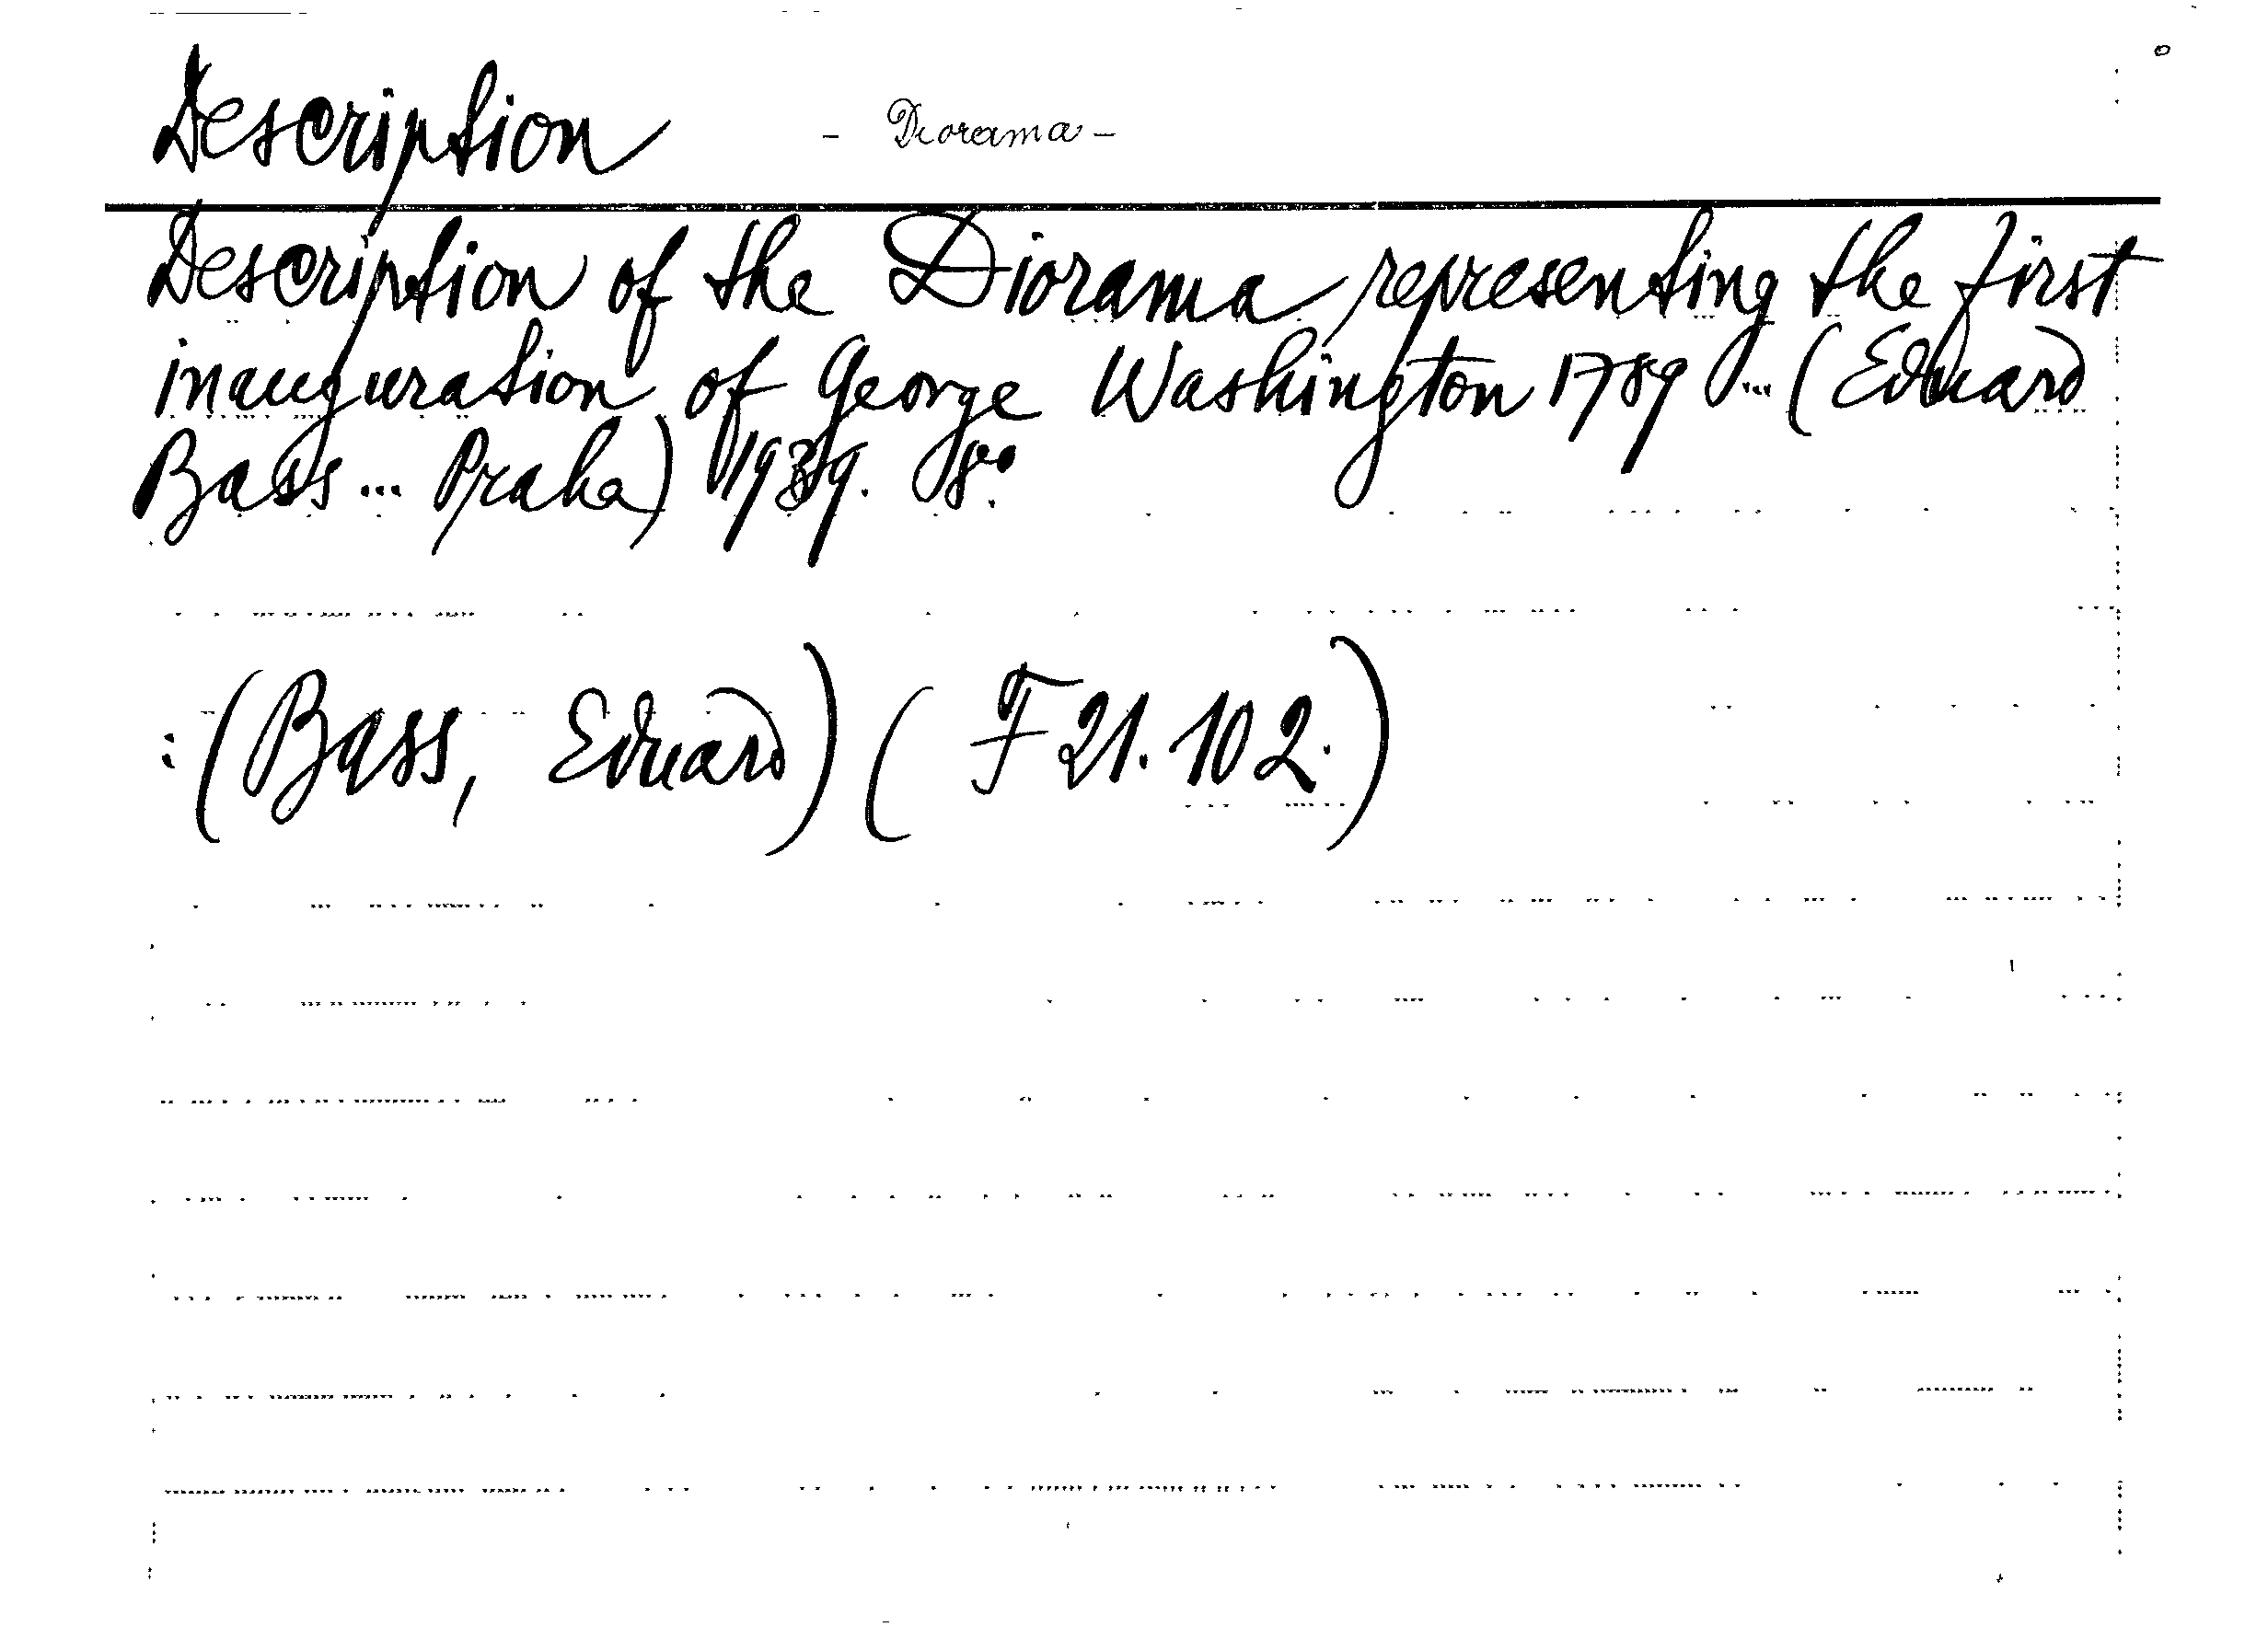 Description - Diorama -
Description of the Diorama representing the first
inauguration of George Washington 1789 ... (Eduard
Bass ... Praha) 1939. 8°.
: (Bass, Eduard) (F 21.102.)